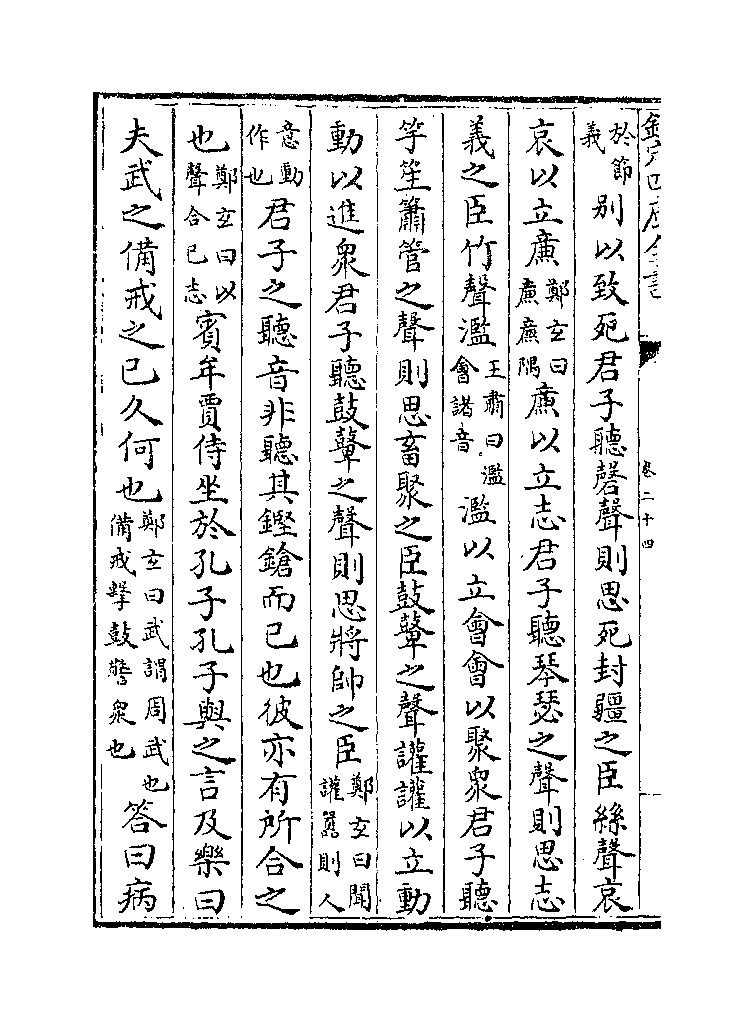 欽定四庫全書
卷二十四
於節義別以致死君子聽磬聲則思死封疆之臣絲聲哀
哀以立亷鄭玄曰亷亷隅亷以立志君子聽琴瑟之聲則思志
義之臣竹聲濫王肅曰濫會諸音濫以立會會以聚衆君子聽
竽笙簫管之聲則思畜聚之臣鼓鼙之聲讙讙以立動
動以進衆君子聽鼓鼙之聲則思將帥之臣鄭玄曰聞讙嚣則人
意動作也君子之聽音非聽其鏗鎗而已也彼亦有所合之
也鄭玄曰以聲合已志賓牟賈侍坐於孔子孔子與之言及樂曰
夫武之備戒之已久何也鄭玄曰武謂周武也備戒擊鼓警衆也答曰病